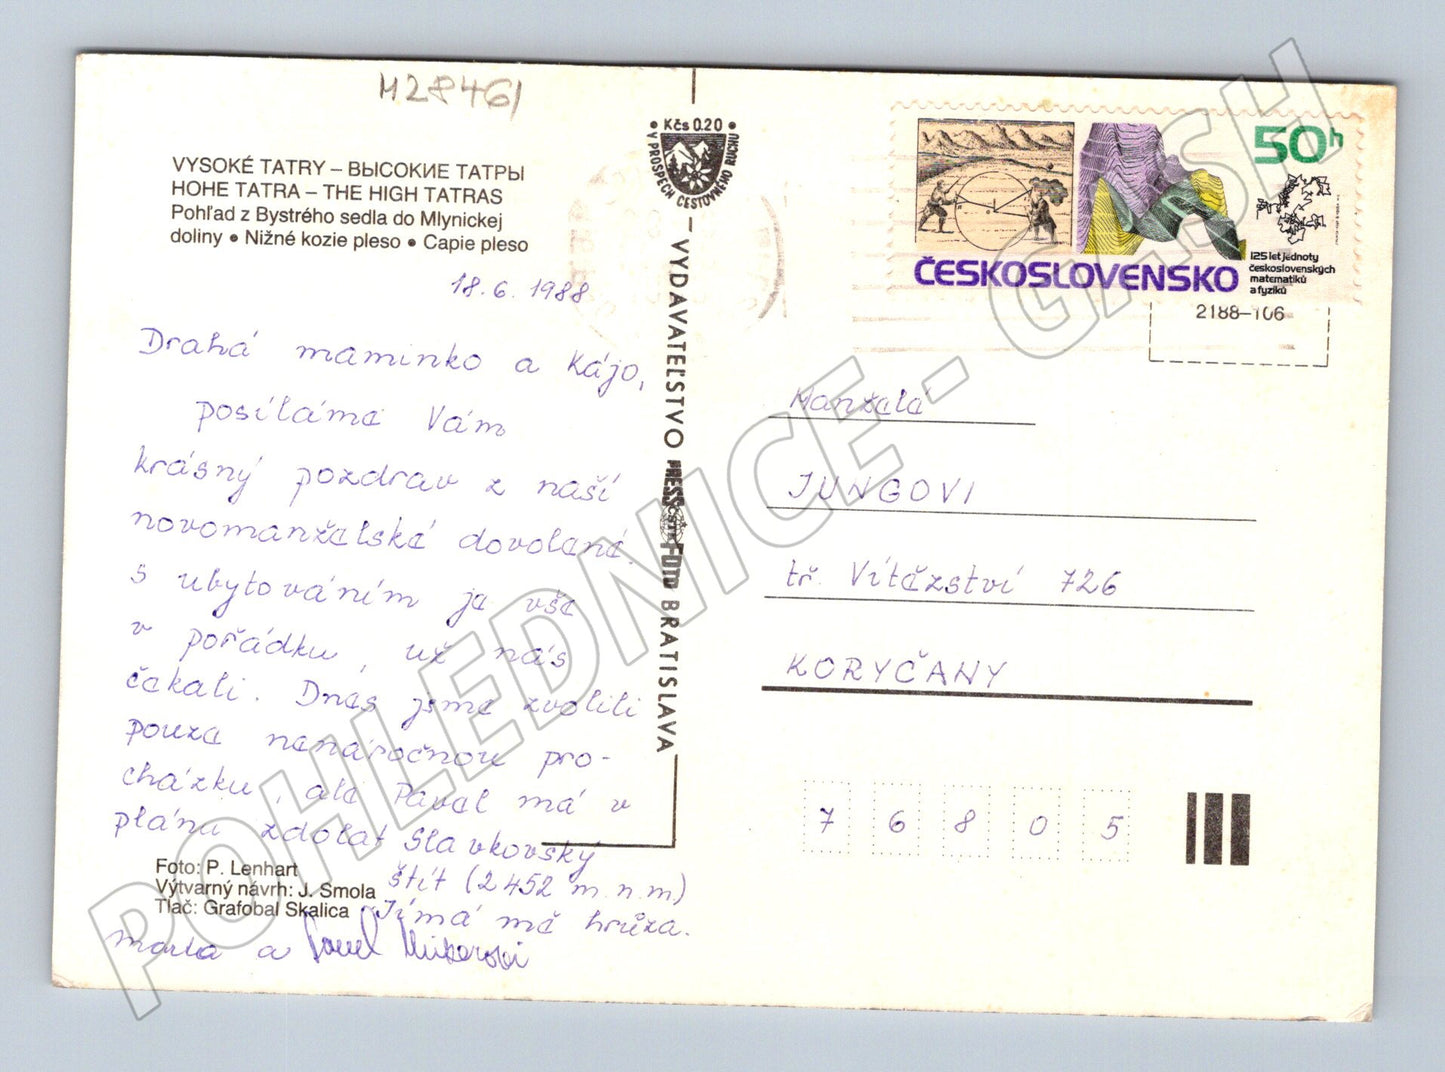 M28461
VYSOKÉ TATRY – ВЫСОКИЕ ТАТРЫ
HOHE TATRA – THE HIGH TATRAS
Pohľad z Bystrého sedla do Mlynickej
doliny • Nižné kozie pleso • Capie pleso
18.6.1988
Drahá maminko a Kájo,
posíláme Vám
krásný pozdrav z naší
novomanželské dovolené.
S ubytováním je vše
v pořádku, už nás
čekali. Dnes jsme zvolili
pouze nenáročnou pro-
cházku, ale Pavel má v
plánu zdolat Slavkovský
štít (2452 m.n.m)
Jímá mě hrůza.
a Pavel
Foto: P. Lenhart
Výtvarný návrh: J. Smola
Tlač: Grafobal Skalica
• Kčs 0.20 •
V PROSPECH CESTOVNÉHO RUCHU
VYDAVATEĽSTVO PRESSFOTO BRATISLAVA
ČSTK
50h
ČESKOSLOVENSKO
125 let jednoty
československých
matematiků
a fyziků
2188–106
Manželé
JUNGOVI
tř. Vítězství 726
KORYČANY
7 6 8 0 5
POHLEDNICE - GASH